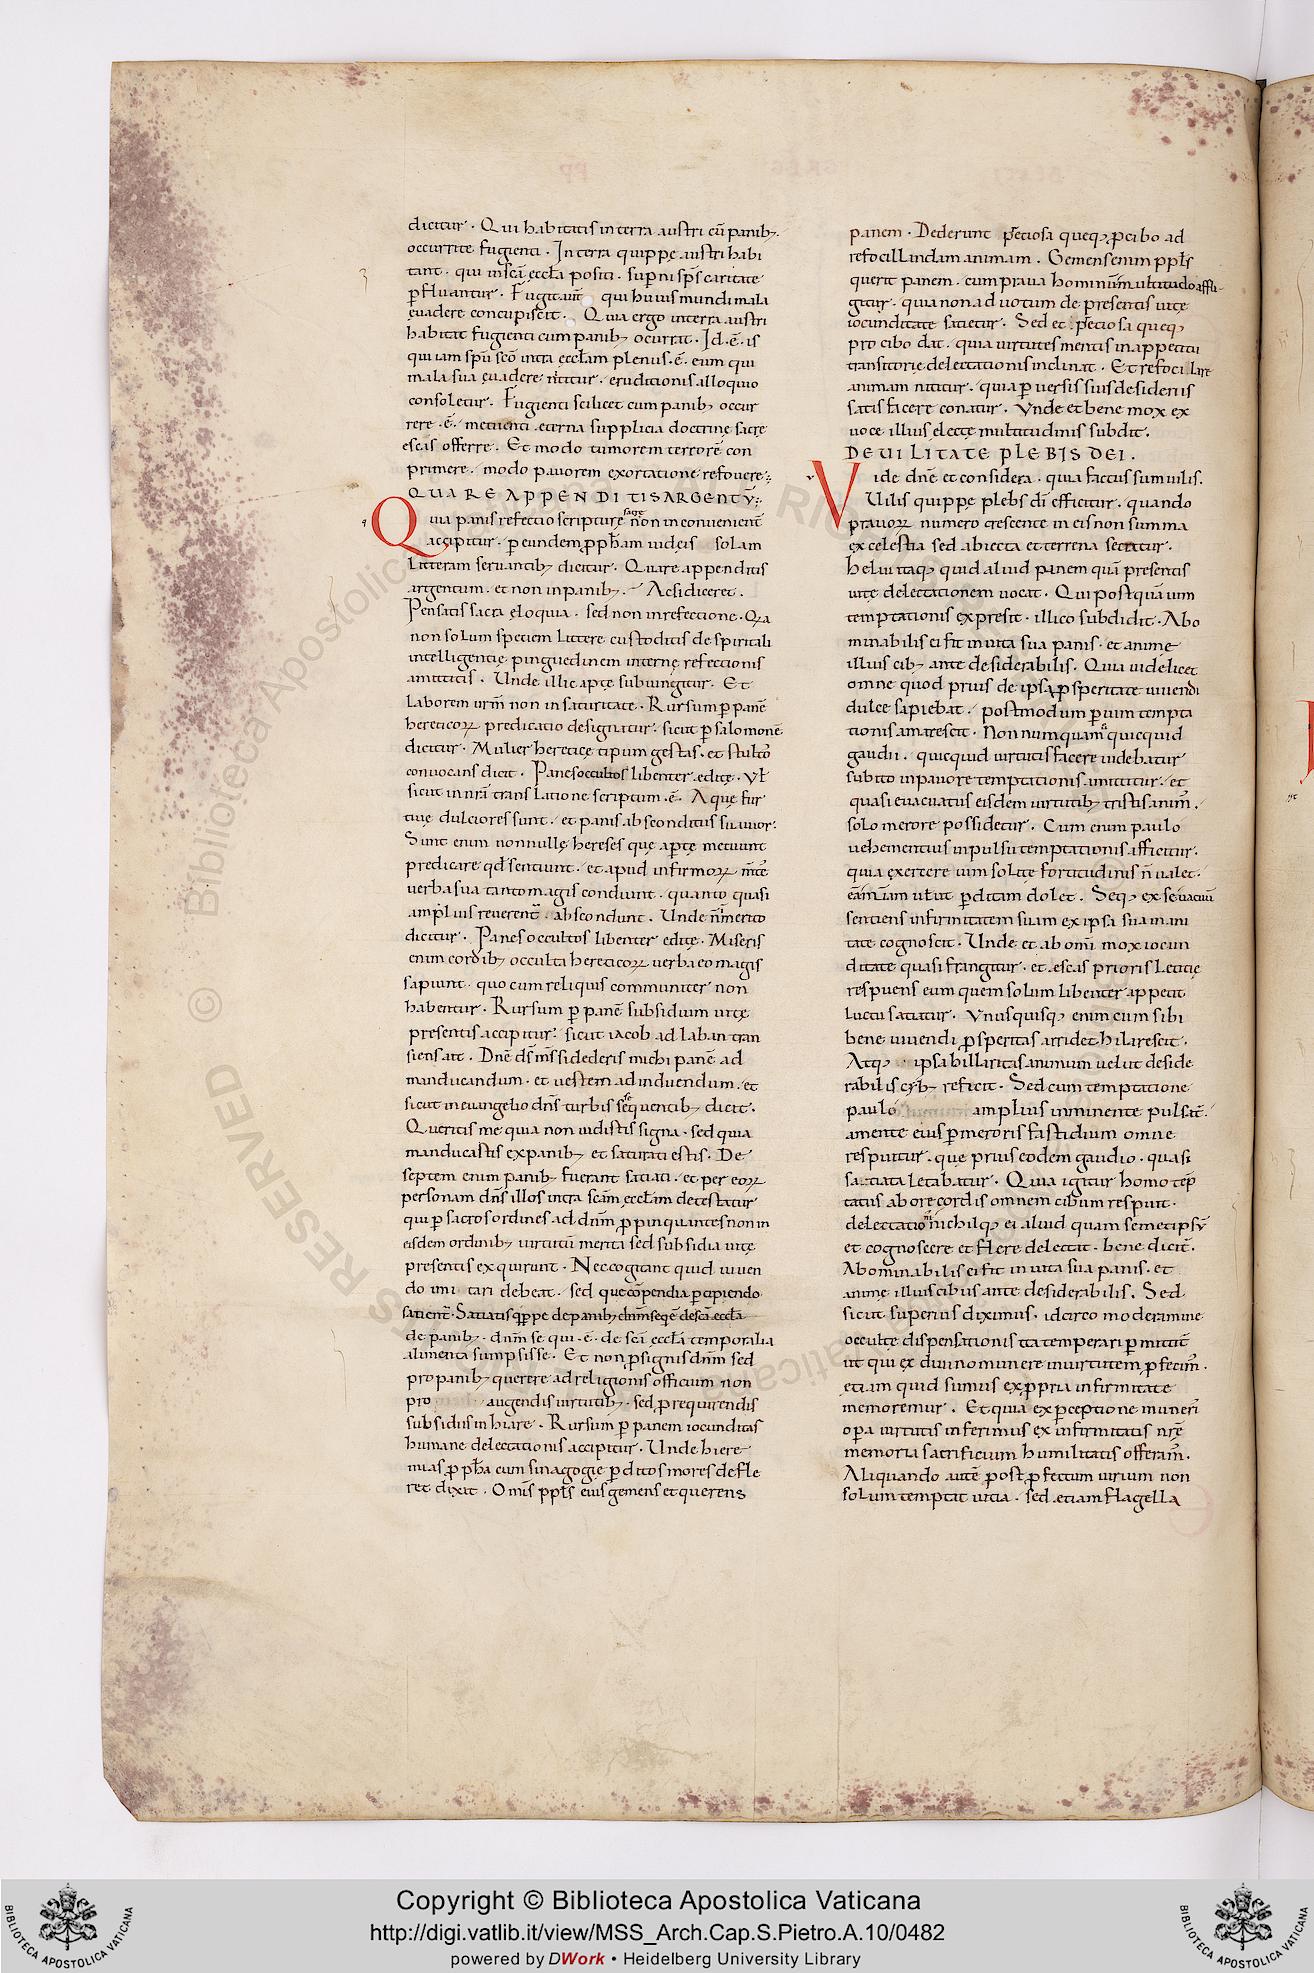 dicitur. Qui habitatis in terra austri cū panibꝫ.
occurrite fugienti. In terra quippe austri habi
tant. qui in scā eccła positi. supni sp̄s caritate
ꝑfluantur. Fugit aut̄ qui huius mundi mala
euadere concupiscit. Quia ergo in terra austri
habitat fugienti cum panibꝫ ocurrat. Id.ē. is
qui iam spū scō intra eccłam plenus.ē. eum qui
mala sua euadere nititur. eruditionis alloquio
consoletur. Fugienti scilicet cum panibꝫ occur
rere.ē. metuenti eterna supplicia doctrinę sacrę
escas offerre. Et modo tumorem terrorē con
primere. modo pauorem exortatione refouere.
QUARE APPENDITIS ARGENTŪ.
Quia panis refectio scripturę sacrę non inconuenient̄
accipitur. per eundem ꝓpħam iudeis solam
litteram seruantibꝫ dicitur. Quare appenditis
argentum. et non in panibꝫ. Ac si diceret.
Pensatis sacra eloquia. sed non in refectione. Quia
non solum speciem litterę custoditis de spiritali
intelligentię pinguedinem internę refectionis
amittitis. Unde illic apte subiungitur. Et
laborem urm̄ non in saturitate. Rursum ꝑ panē
hereticoꝝ predicatio designatur. sicut ꝑ salomonē
dicitur. Mulier hereticę tipum gestas. et stulto
conuocans dicit. Panes occultos libenter edite. Vł
sicut in nr̄a translatione scriptum.ē. Aque fur
tiuę dulciores sunt. et panis absconditus suauior.
Sunt enim nonnullę hereses que aꝑte metuunt
predicare qđ sentiunt. et apud infirmoꝝ mtē
uerba sua tanto magis condiunt. quanto quasi
amplius reuerent̄ abscondunt. Unde n̄ inmerito
dicitur. Panes occultos libenter edite. Miseris
enim cordibꝫ occulta hereticoꝝ uerba eo magis
sapiunt. quo cum reliquis communiter non
habentur. Rursum ꝑ panē subsidium uitę
presentis accipitur. sicut iacob ad laban tran
siens ait. Dnē ds̄ ms̄ si dederis michi panē ad
manducandum. et uestem ad induendum. et
sicut in euangelio dn̄s turbis sequentibꝫ dicit.
Queritis me quia non uidistis signa. sed quia
manducastis ex panibꝫ et saturati estis. De
septem enim panibꝫ fuerant satiati. et per eoꝝ
personam dn̄s illos intra scam ecclam detestatur
qui ꝑ sacros ordines ad dnm̄ ꝓpinquantes non in
eisdem ordinibꝫ uirtutū merita sed subsidia uitę
presentis exquirunt. Nec cogitant quid uiuen
do imitari debeat. sed que cōpendia ꝑcipiendo
satient̄. Satiatis q̄ppe de panibꝫ dnm̄ seq̄ ē de scā eccła
de panibꝫ. dnm̄ sequi.ē. de scā eccła temporalia
alimenta sumpsisse. Et non ꝓ signis dnm̄ sed
pro panibꝫ querere ad religionis officium non
pro augendis uirtutibꝫ. sed ꝓ requirendis
subsidiis inhiare. Rursum ꝑ panem iocunditas
humanę delectationis accipitur. Unde hiere
mias ꝓpħa cum sinagogę ꝑditos mores defle
ret dixit. Omis ppłs eius gemens et querens
panem. Dederunt p̄ciosa queqꝫ ꝓ cibo ad
refocillandam animam. Gemens enim ppłs
querit panem. cum praua hominū multitudo affli
gitur. quia non ad uotum de presentis uitę
iocunditate satietur. Sed et p̄ciosa queqꝫ
pro cibo dat. quia uirtutes mentis in appetitu
transitorie delectationis inclinat. Et refocillare
animam nititur. quia ꝑuersis suis desideriis
satisfacere conatur. Vnde et bene mox ex
uoce illius electę multitudinis subdit.
DE UILITATE PLEBIS DEI.
Vide dnē et considera. quia factus sum uilis.
Uilis quippe plebs dī efficitur. quando
prauoꝝ numero crescente in eis non summa
ex celestia sed abiecta et terrena sectatur.
heliu itaqꝫ quid aliud panem quā presentis
uitę delectationem uocat. Qui postquā uim
temptationis expresit. illico subdidit. Abo
minabilis ei fit in uita sua panis. et anime
illius cibꝫ ante desiderabilis. Quia uidelicet
omne quod prius de ipsa ꝓsperitate uiuendi
dulce sapiebat. postmodum ꝑ uim tempta
tionis amarescit. Non numquam quicquid
gaudii. quicquid uirtutis facere uidebatur
subito in pauore temptationis amittitur. et
quasi euacuatus eisdem uirtutibꝫ tristis anim̄.
solo merore possidetur. Cum enim paulo
uehementius inpulsu temptationis afficitur.
quia exercere uim solitę fortitudinis n̄ ualet.
eā iam ułut ꝑditam dolet. Seqꝫ ex se uacuū
sentiens infirmitatem suam ex ipsa sua inani
tate cognoscit. Unde et ab omi mox iocun
ditate quasi frangitur. et escas prioris letitię
respuens eum quem solum libenter appetit
luctu satiatur. Vnusquisqꝫ enim cum sibi
bene uiuendi ꝓsperitas arridet hilarescit.
Atqꝫ ipsa hillaritas animum uelut deside
rabilis cybꝫ reficit. Sed cum temptatione
paulo amplius imminente pulsat̄.
a mente eius ꝑ meroris fastidium omne
respuitur. que prius eodem gaudio. quasi
satiata letabatur. Quia igitur homo tēp
tatus ab ore cordis omnem cibum respuit.
delectationis nichilqꝫ ei aliud quam semetipsū
et cognoscere et flere delectat. bene dicit̄.
Abominabilis ei fit in uita sua panis. et
anime illius cibus ante desiderabilis. Sed
sicut superius diximus. idcirco moderamine
occultę dispensationis ita temperari ꝑmittit̄
ut qui ex diuino munere in uirtutem ꝓfecim̄.
etiam quid sumus ex ꝓpria infirmitate
memoremur. Et quia ex ꝑceptione muneri
oꝑa uirtutis inferimus ex infirmitatis nr̄ę
memoria sacrificium humilitatis offeram̄.
Aliquando autē post ꝓfectum uirium non
solum temptat uitia. sed etiam flagella
Copyright © Biblioteca Apostolica Vaticana
http://digi.vatlib.it/view/MSS_Arch.Cap.S.Pietro.A.10/0482
powered by DWork • Heidelberg University Library
BIBLIOTECA APOSTOLICA VATICANA
BIBLIOTECA APOSTOLICA VATICANA